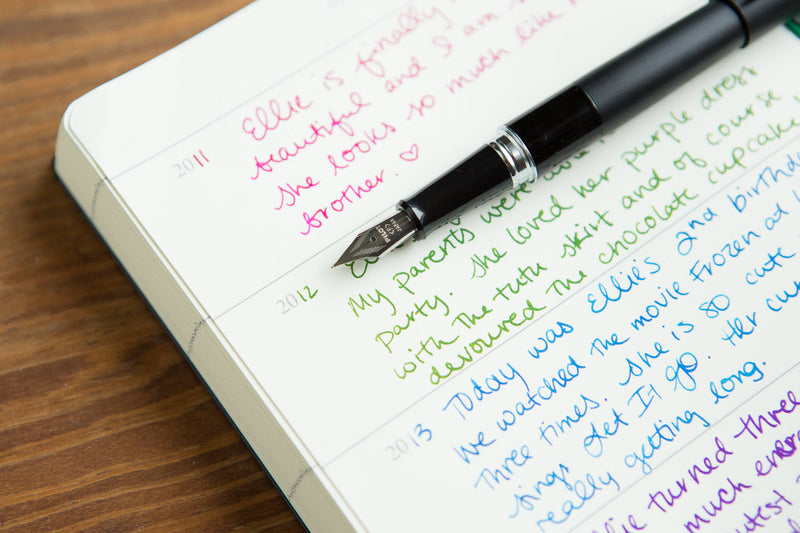 2011
Ellie is finally
beautiful and I am
she looks so much like
brother. ♡
PILOT
JAPAN
2012
My parents were
party. She loved her purple dress
with the tutu skirt and of course
devoured the chocolate cupcake
2013
Today was Ellie's 2nd birthday
We watched the movie Frozen at
Three times. She is so cute
sings Let It go. Her
really getting long.
turned three
much